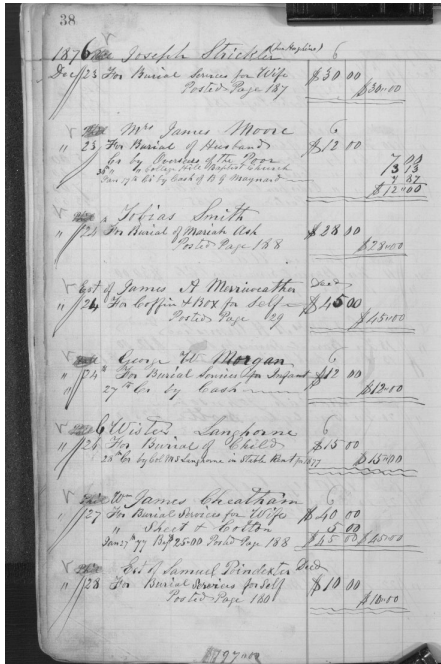 38
1876 Joseph Strickler 6
Dec 23 For Burial Services for Wife $30 00
Posted Page 187 $30.00
Mrs James Moore 6
" 23 For Burial of Husband $12 00
Cr by Overseers of the Poor 7 00
" College Hill Baptist Church 3 13
Jan 17th Cr by Cash of B G Maynard
$12.00
Tobias Smith
" 24 For Burial of Mariah Ash $28 00
Posted Page 188 $28.00
Est of James A Merriweather Decd
" 24 For Coffin & Box for Self $45 00
Posted Page 29 $45.00
George W Morgan 6
" 24th For Burial Services for Infant $12 00
27th Cr by Cash $12.00
Wister Langhorne 6
" 26 For Burial of Child $15 00
28th Cr by Col M S Langhorne in Stable Rent for 1877 $15.00
Wm James Cheatham 6
" 27 For Burial Services for Wife $40 00
" Sheet & Cotton 5 00
Jan 27th 77 By $25.00 Posted Page 188 $45 00 $45.00
Est of Samuel Pindexter Decd
" 28 For Burial Services for Self $10 00
Posted Page 180 $10.00
197.00